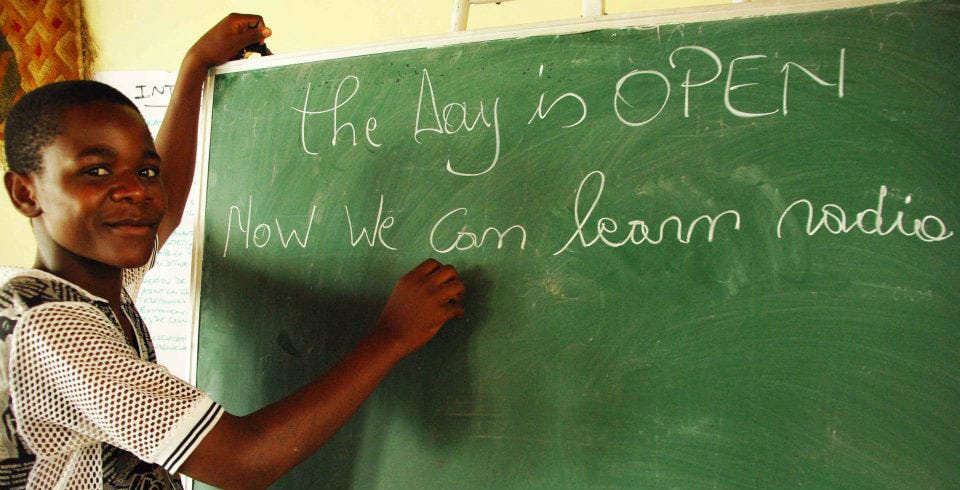 INT
the Day is OPEN
Now We Can learn radio